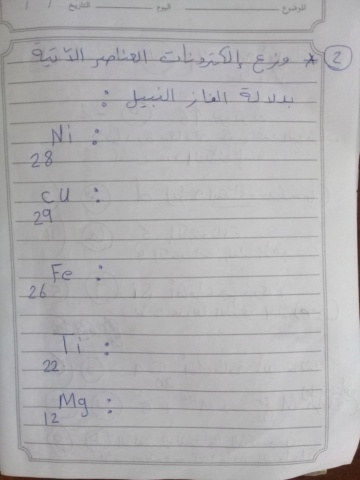 الموضوع اليوم التاريخ / /
2) * وزع إلكترونات العناصر الآتية
بدلالة الغاز النبيل :
Ni :
28
CU :
29
Fe :
26
Ti :
22
Mg :
12